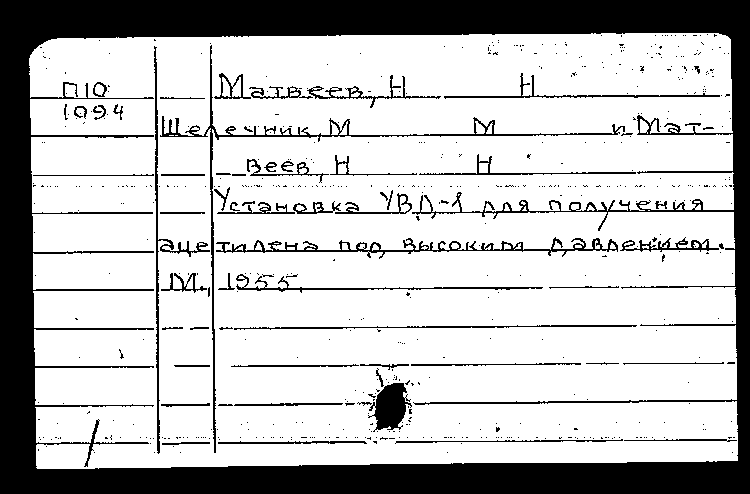 П10 Матвеев, Н Н
1094
Щелечник, М М и Мат-
веев, Н Н
Установка УВД-1 для получения
ацетилена под высоким давлением.
М., 1955.